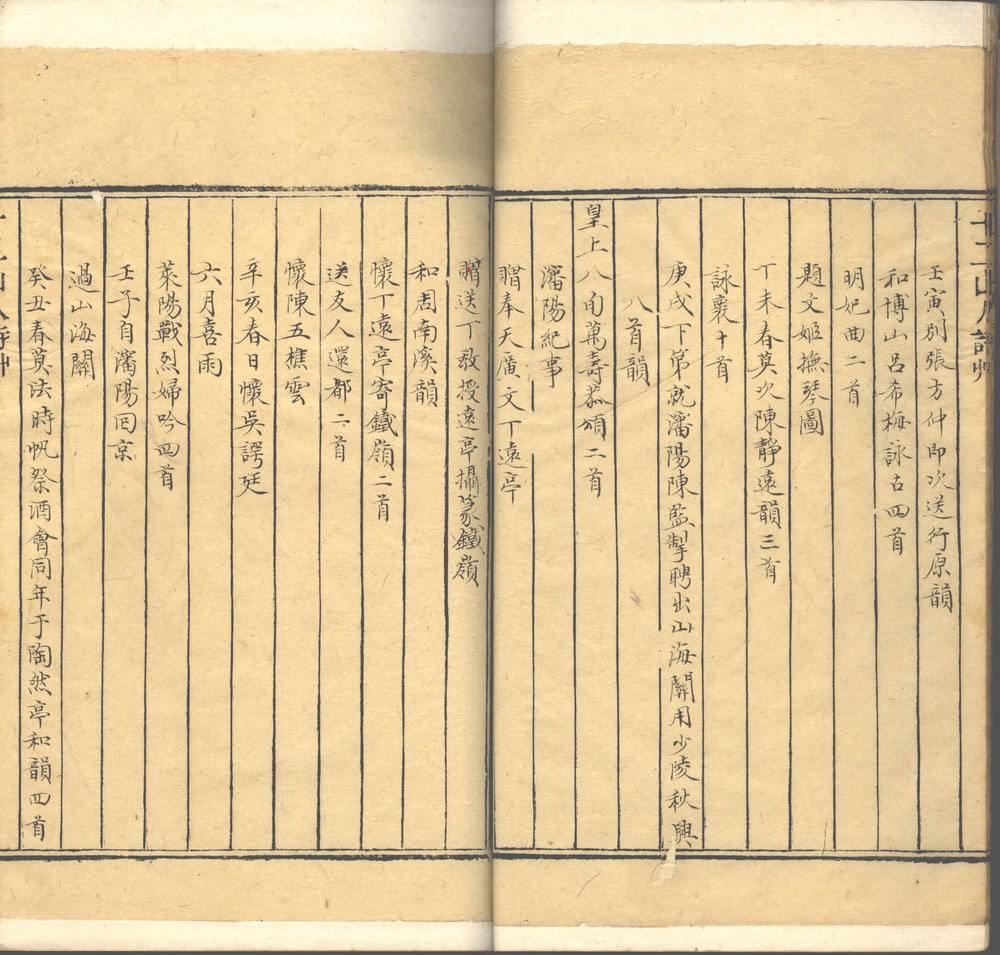 壬寅別張方仲即次送行原韻
和博山呂希梅詠古四首
明妃曲二首
題文姬撫琴圖
丁未春莫次陳靜遠韻三首
詠襄十首
庚戌下第就瀋陽陳監掣聘出山海關用少陵秋興
八首韻
皇上八旬萬壽恭頌二首
瀋陽紀事
贈奉天廣文丁遠亭
贈送丁教授遠亭攝篆鐵嶺
和周南溪韻
懷丁遠亭寄鐵嶺二首
送友人還都二首
懷陳五樵雲
辛亥春日懷吳諤廷
六月喜雨
萊陽戰烈婦吟四首
壬子自瀋陽囘京
過山海關
癸丑春莫法時帆祭酒會同年于陶然亭和韻四首